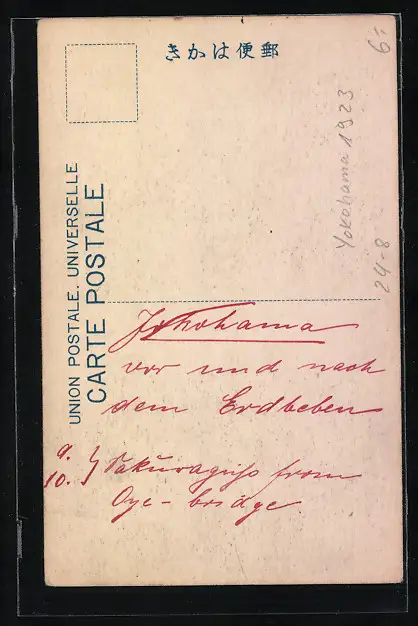 きかは便郵
UNION POSTALE. UNIVERSELLE
CARTE POSTALE
6.-
Yokohama 1923
24-8
Yokohama
vor und nach
dem Erdbeben
9.
10. } Sakuragicho from
Oye-bridge